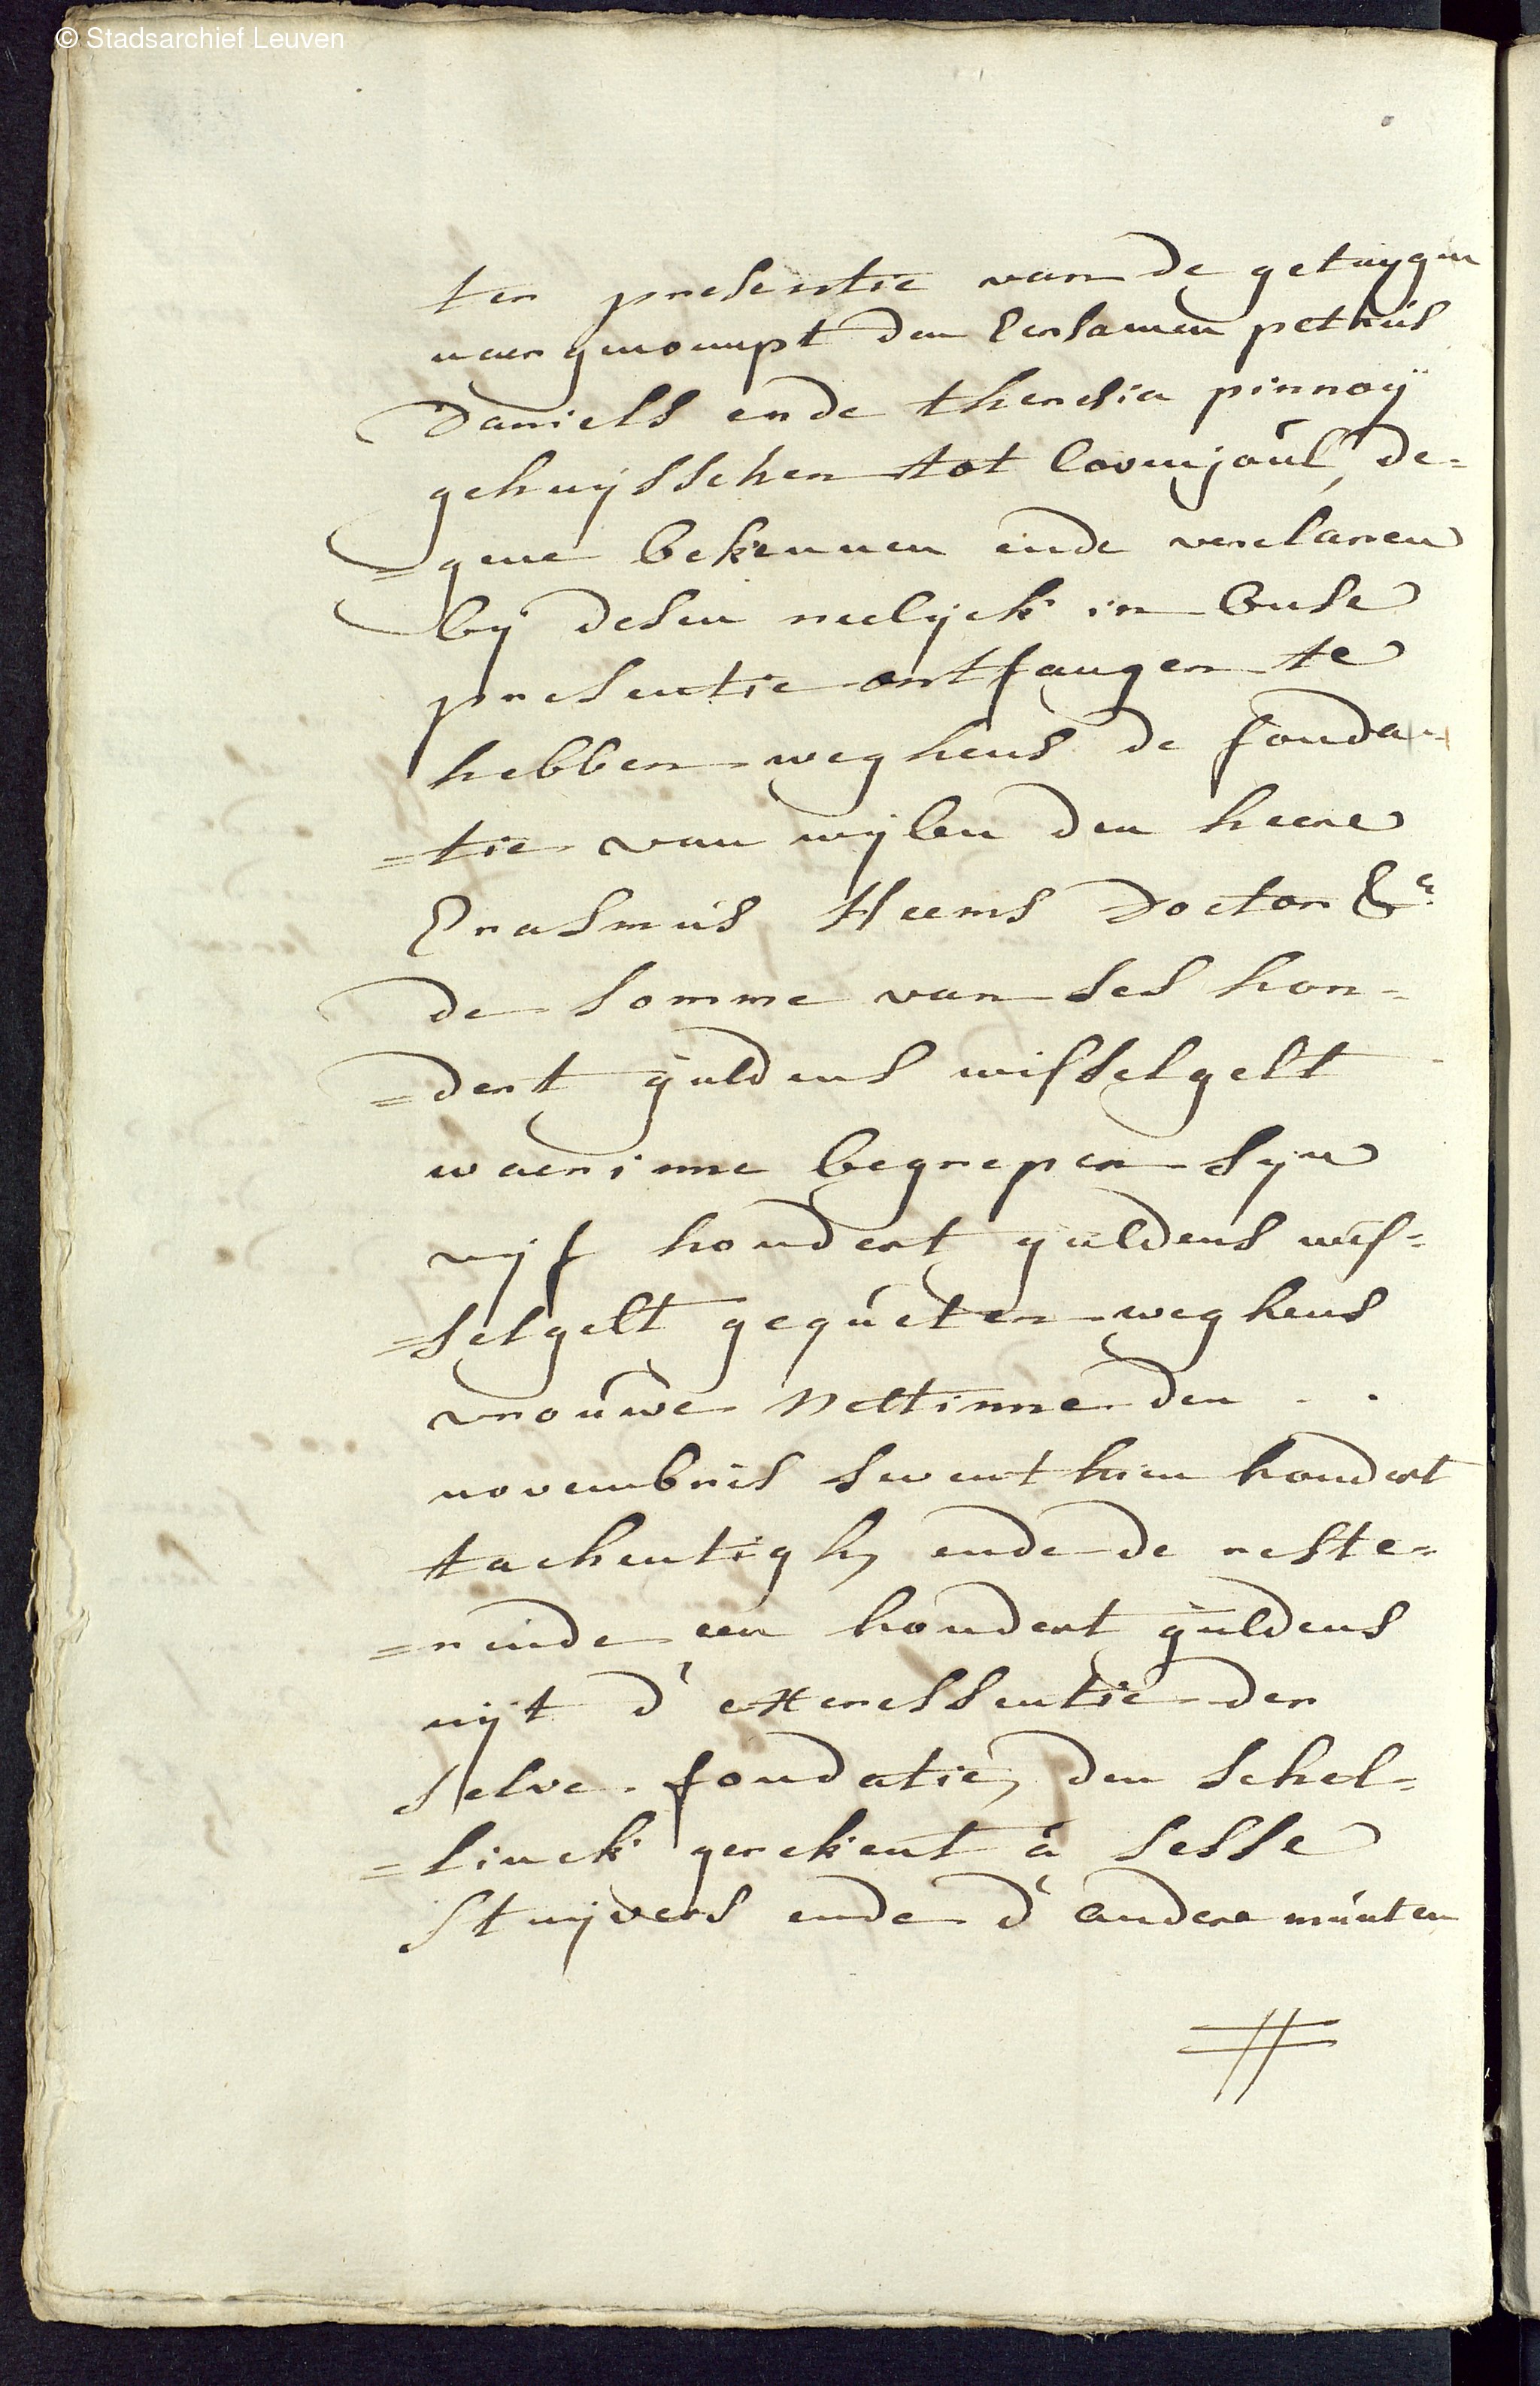 © Stadsarchief Leuven
ter presentie van de getuygen
naergenoempt den Eersamen petrus
Daniels ende theresia pinnoÿ
gehuijsschen tot Lovenjoúl, de=
=gene bekennen ende verclaren
bij desen reelijck in onse
presentie ontfangen te
hebben weghens de fonda=
=tie van wijlen den heere
Erasmus Heems Doctor &a
de somme van ses hon=
=dert guldens wisselgelt
waerinne begrepen syn
vijf hondert guldens wis=
=selgelt gequeten weghens
vrouwe Nettinne den . .
novembris seventhien hondert
tachentigh, ende de reste=
=rende een hondert guldens
uijt d'excressentie der
selve fondatie, den schel=
=linck gerekent à sesse
stuijvers ende d'andere munten